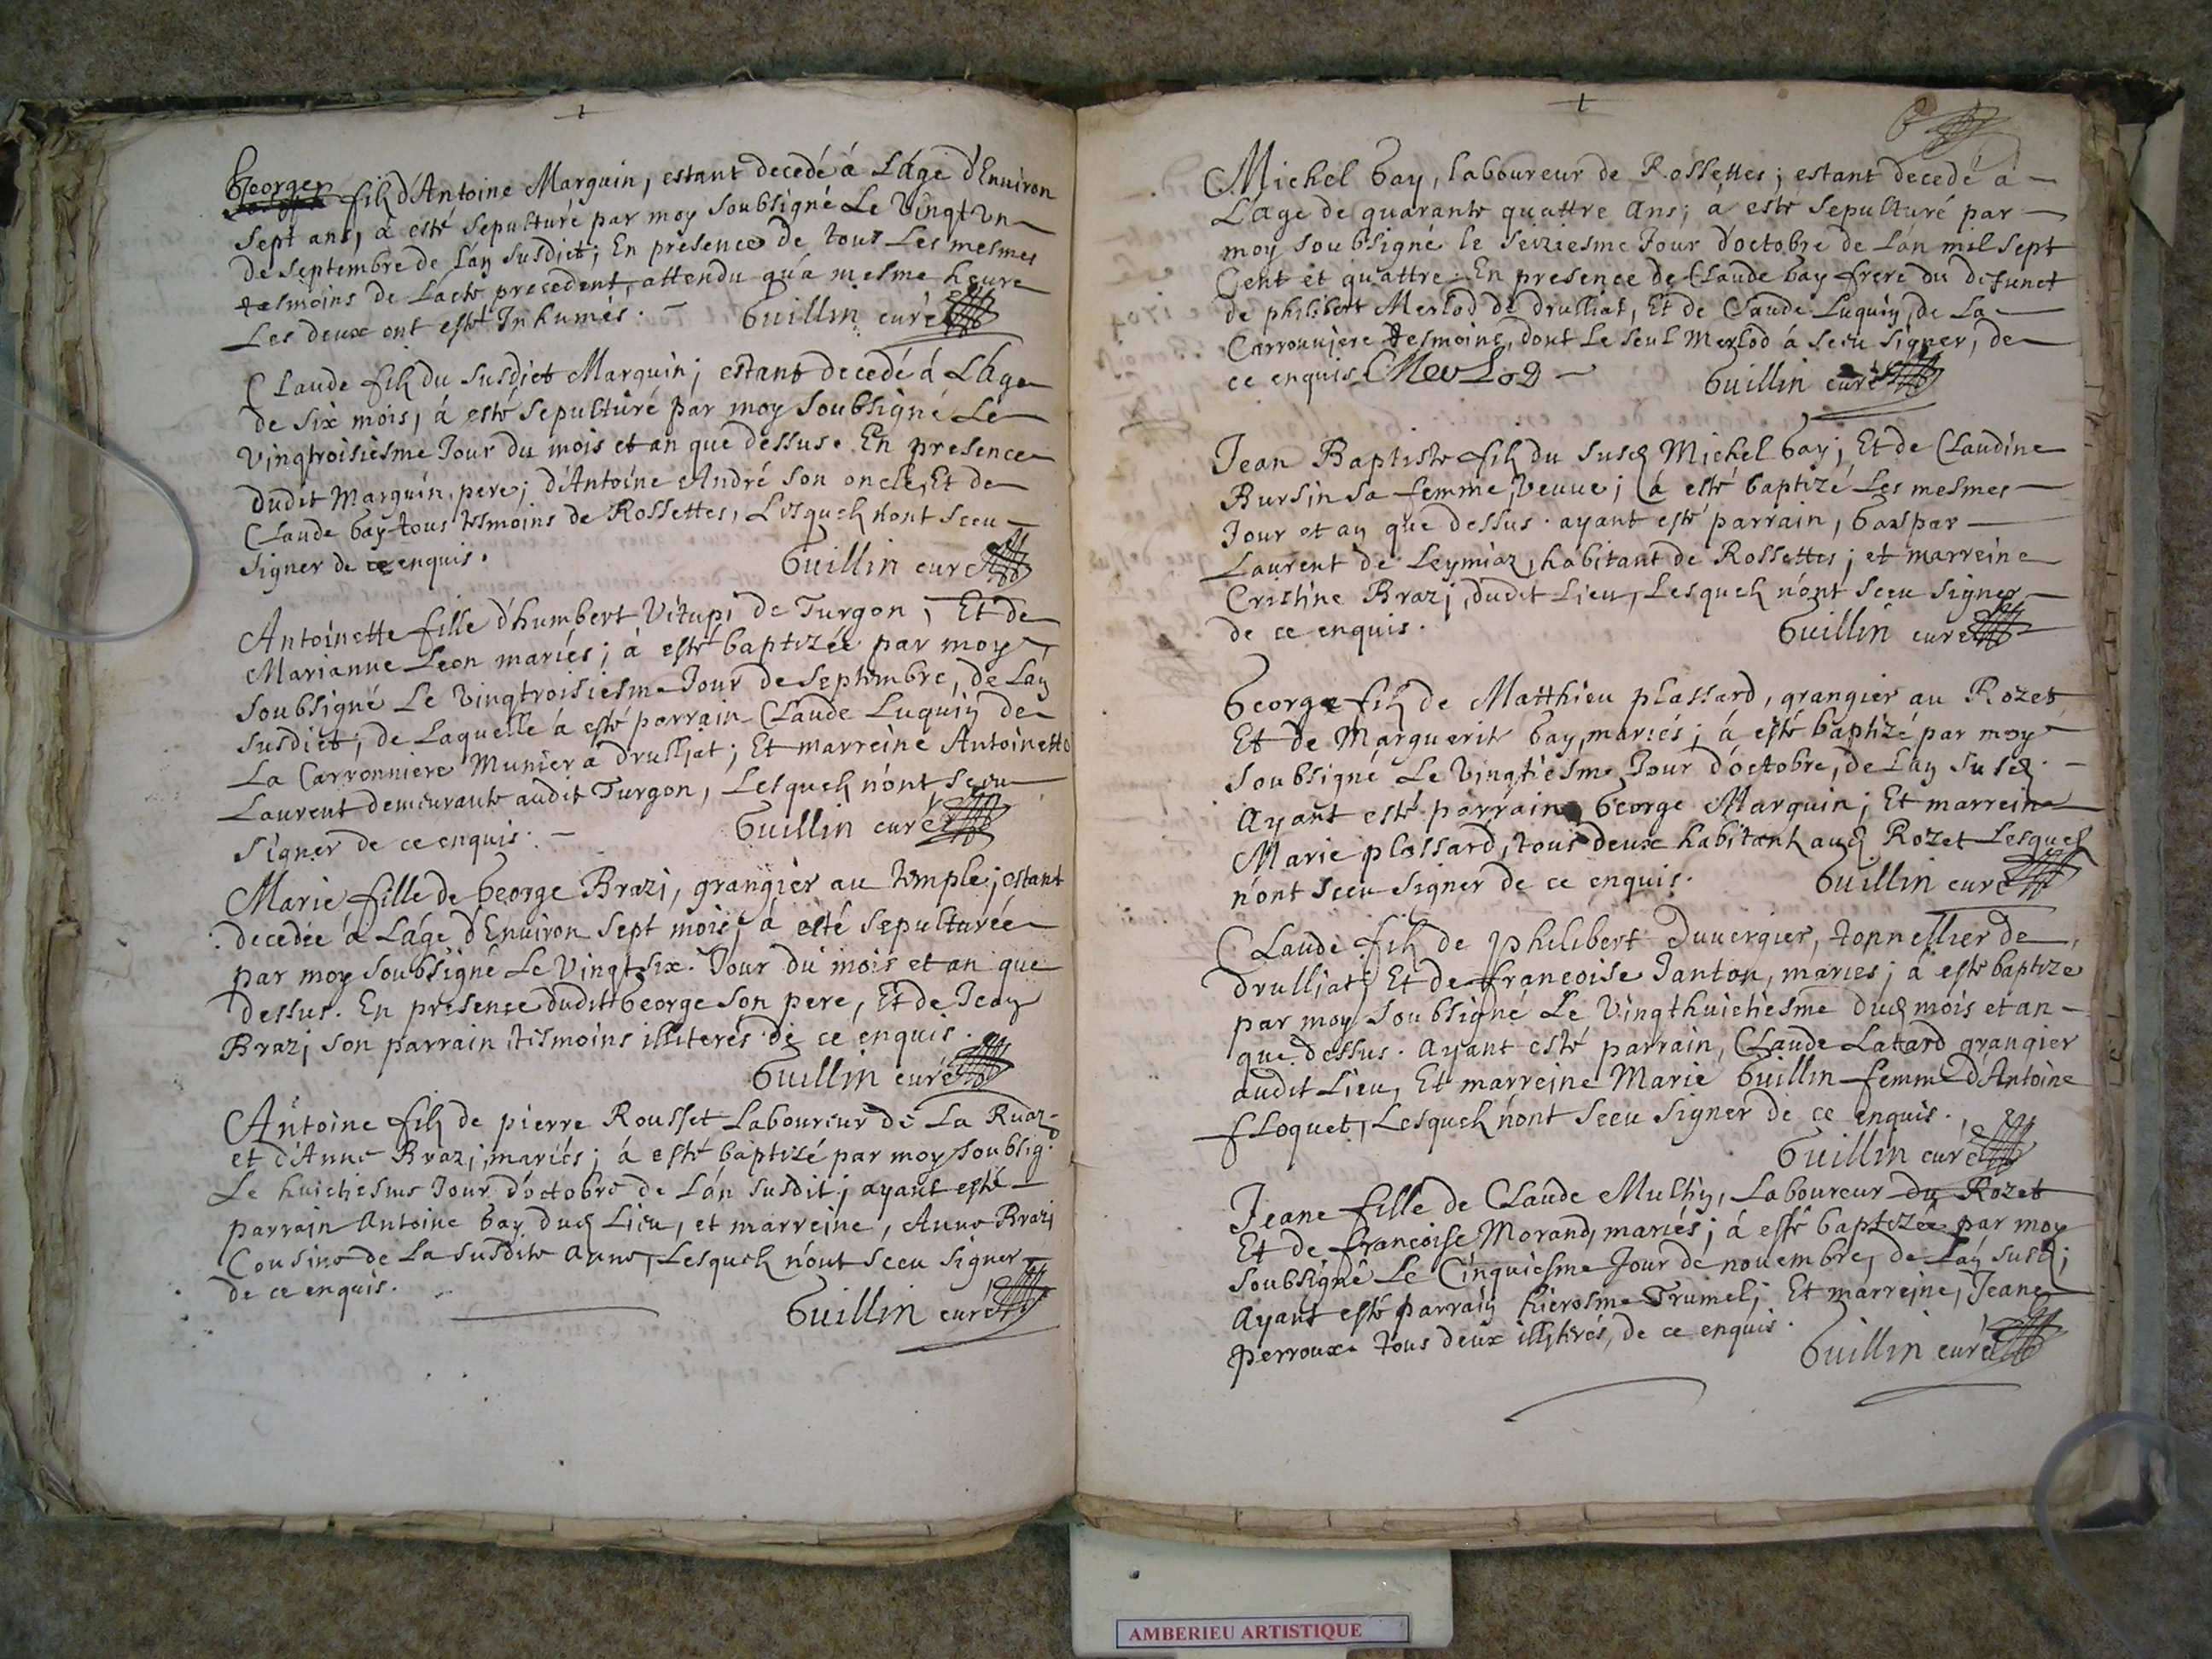 George
filz d'Antoine Marguin, estant decedé á L'áge d'Enuiron
sept ans, á esté sepulturé par moy soubsigné Le Vingt vn
de septembre de L'an susdict; En presence de tous Les mesmes
tesmoins de L'acte precedent, attendu qu'a mesme heure
Les deux ont esté Inhumés. Guillin curé
Claude filz du susdict Marguin; estant decedé á L'áge
de six mois, á esté sepulturé par moy soubsigné Le
vingtroisiesme Jour du mois et an que dessus. En presence
dudit Marguin, pere; d'Antoine André son oncle, Et de
Claude Gay tous tesmoins de Rossettes, Lesquelz n'ont sceu
signer de ce enquis. Guillin curé
Antoinette fille d'humbert Vitupi de Turgon, Et de
Marianne Leon mariés; á esté baptizée par moy
soubsigné Le vingtroisiesme Jour de septembre, de L'an
susdict; de Laquelle á esté parrain Claude Luquin de
La Carronniere Munier á drulliat; Et marreine Antoinette
Laurent demeurante audit Turgon, Lesquelz n'ont sceu
signer de ce enquis. Guillin curé
Marie fille de George Brazi, grangier au temple; estant
decedée á L'áge d'Enuiron sept mois; á esté sepulturée
par moy soubsigné Le Vingt six. Jour du mois et an que
dessus. En presence dudit George son pere, Et de Jean
Brazi son parrain tesmoins illiterés de ce enquis.
Guillin curé
Antoine filz de pierre Rousset Laboureur de La Ruaz
et d'Anne Brazi mariés; á esté baptizé par moy soubsig.
Le huictiesme Jour d'octobre de L'án susdit; ayant esté
parrain Antoine Gay dud. Lieu, et marreine, Anne Brazi
Cousine de La susdite Anne, Lesquelz n'ont sceu signer
de ce enquis. Guillin curé
Michel Gay, laboureur de Rossettes; estant decedé á
L'áge de quarante quattre Ans; á esté sepulturé par
moy soubsigné le seiziesme Jour d'octobre de L'án mil sept
Cent et quattre. En presence de Claude Gay frere du defunct
de philibert Merlod de drulliat, Et de Claude Luquin, de La
Carronniere tesmoins, dont Le seul Merlod á sceu signer, de
ce enquis. Merlod Guillin curé
Jean Baptiste filz du susd. Michel Gay; Et de Claudine
Bursin sa femme, veuue; á esté baptizé Les mesmes
Jour et an que dessus. ayant esté parrain, Gaspar
Laurent de Leymiaz, habitant de Rossettes; et marreine
Cristine Brazi, dudit Lieu, Lesquelz n'ont sceu signer
de ce enquis. Guillin curé
George filz de Matthieu plassard, grangier au Rozet
Et de Marguerite Gay, mariés; á esté baptizé par moy
soubsigné Le vingtiesme Jour d'octobre, de L'an susd.
Ayant esté parrain George Marguin; Et marreine
Marie plassard, tous deux habitantz aud. Rozet Lesquelz
n'ont sceu signer de ce enquis. Guillin curé
Claude filz de Philibert Duuergier, tonnellier de
drulliat; Et de francoise Janton, mariés; á esté baptizé
par moy soubsigné Le Vingthuictiesme dud. mois et an
que dessus. Ayant esté parrain, Claude Latard grangier
audit Lieu, Et marreine Marie Guillin femme d'Antoine
floquet, Lesquelz n'ont sceu signer de ce enquis.
Guillin curé
Jeane fille de Claude Multin, Laboureur du Rozet
Et de francoise Morand, mariés; á esté baptizée par moy
soubsigné Le Cinquiesme Jour de nouembre, de L'an susd.;
Ayant esté parrain hierosme Trumel; Et marreine, Jeane
perroux. tous deux illiterés, de ce enquis. Guillin curé
AMBERIEU ARTISTIQUE